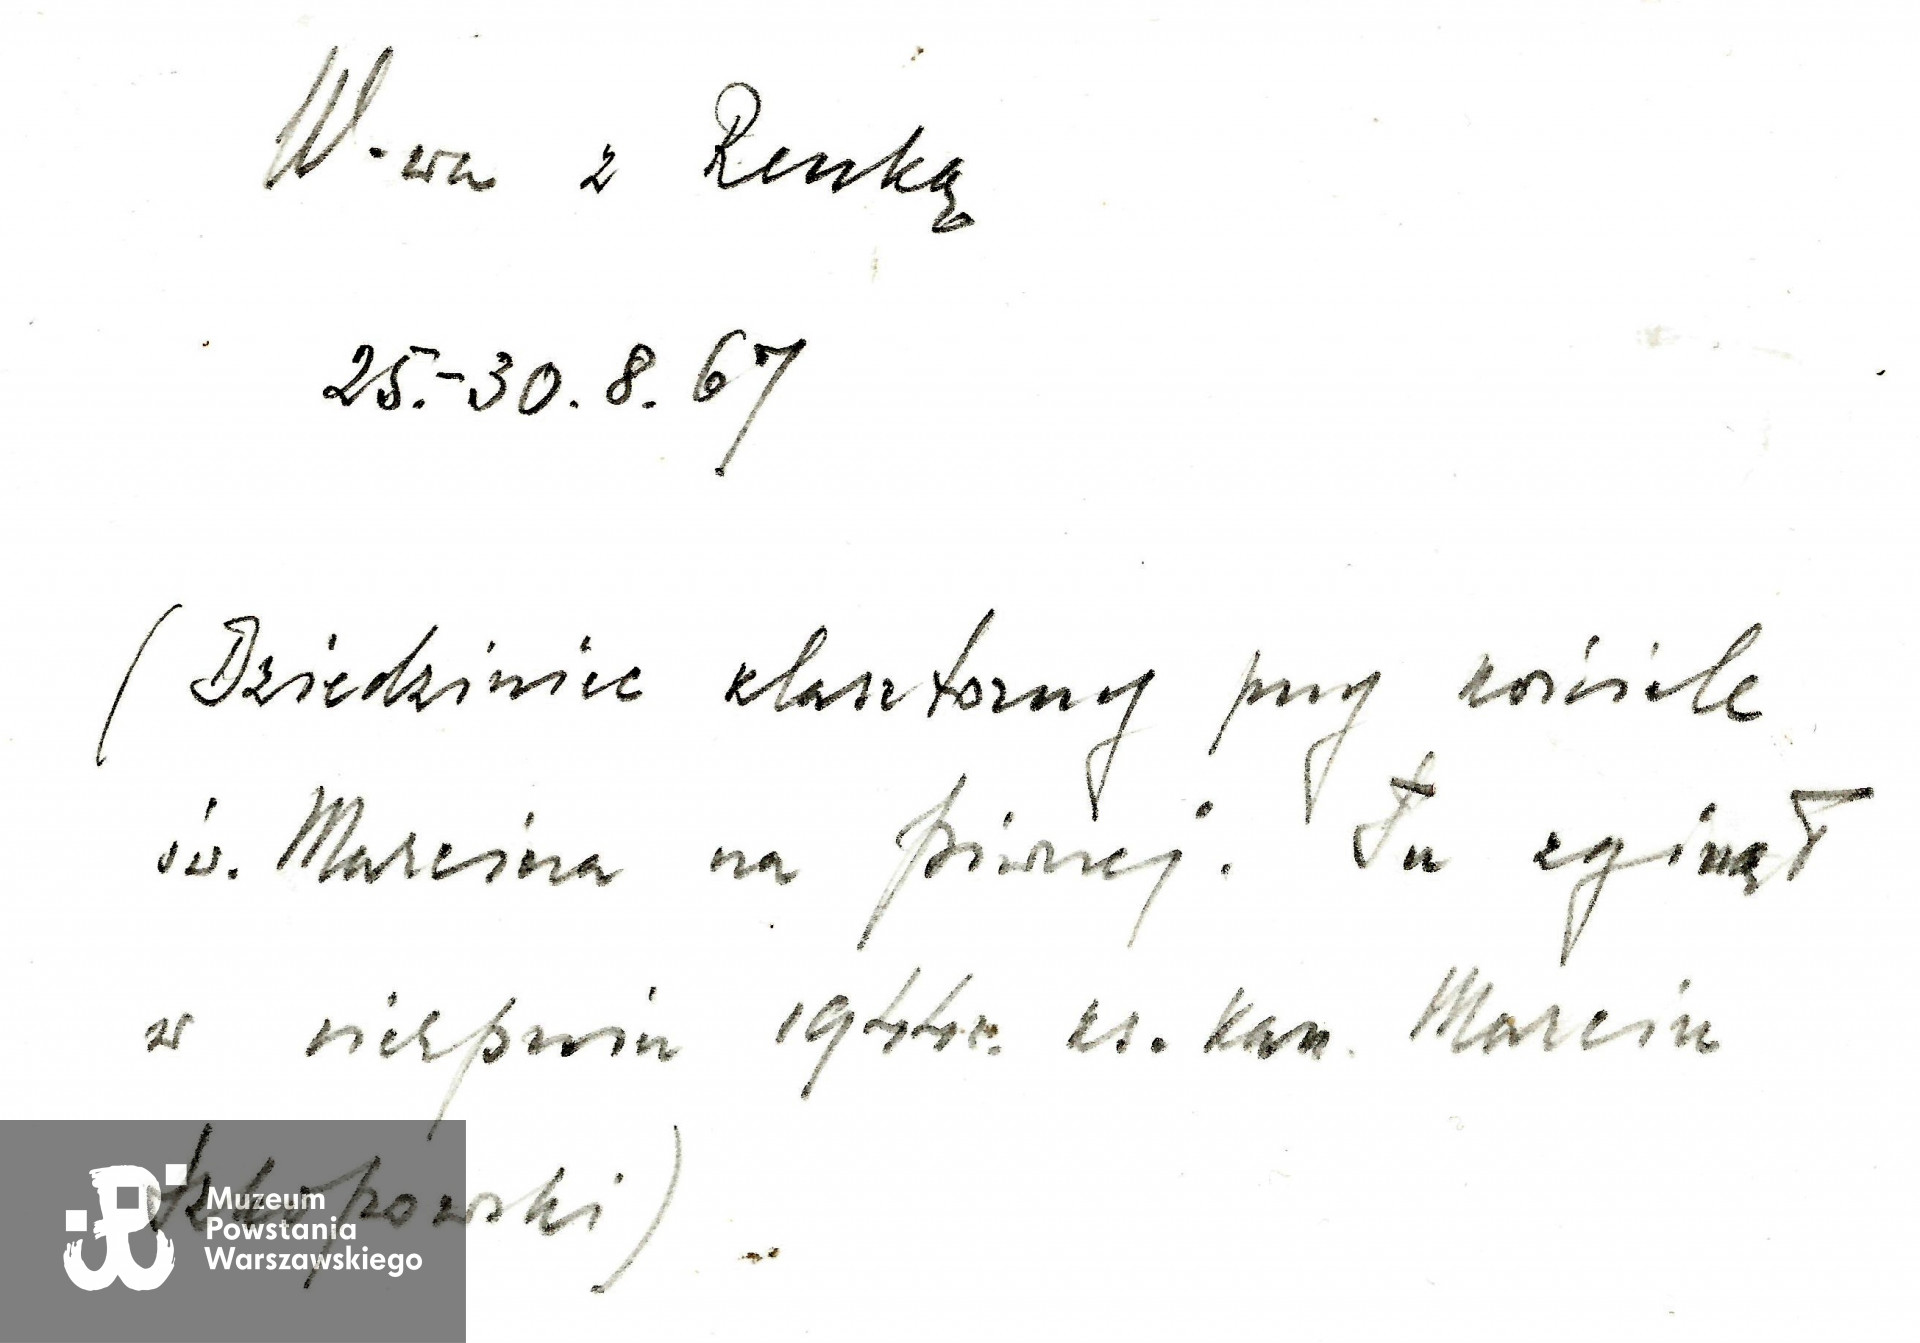 W-wa z Renką
25.-30.8.67
(Dziedziniec klasztorny przy kościele
św. Marcina na Piwnej. Tu zginął
w sierpniu 1944 r. ks. kan. Marcin
)
Muzeum
Powstania
Warszawskiego